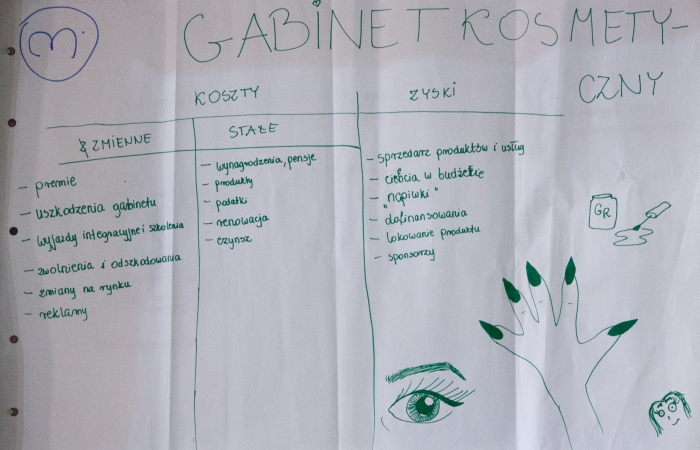 3.
GABINET KOSMETY-
CZNY
KOSZTY
ZMIENNE
- premie
- uszkodzenia gabinetu
- wyjazdy integracyjne i szkolenia
- zwolnienia i odszkodowania
- zmiany na rynku
- reklamy
STAŁE
- wynagrodzenia, pensje
- produkty
- podatki
- renowacja
- czynsz
ZYSKI
- sprzedarz produktów i usług
- cięcia w budżecie
- "napiwki"
- dofinansowania
- lokowanie produktu
- sponsorzy
GR